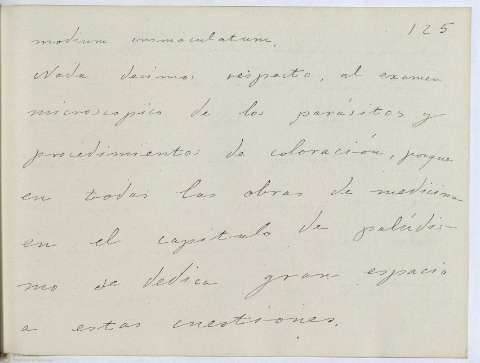 125
modium immaculatum.
Nada decimos respecto, al examen
microscopico de los parásitos y
procedimientos de coloración, porque
en todas las obras de medicina
en el capitulo de palúdis-
mo se dedica gran espacio
a estas cuestiones.